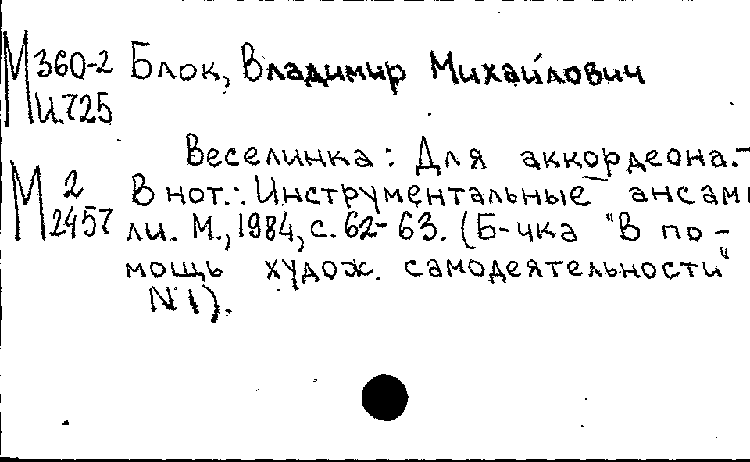 М 360-2 Блок, Владимир Михайлович
И.725
Веселинка: Для аккордеона.-
М 2 В нот.: Инструментальные ансамб
2457 ли. М., 1984, с. 62-63. (Б-чка "В по-
мощь худож. самодеятельности"
N 1).